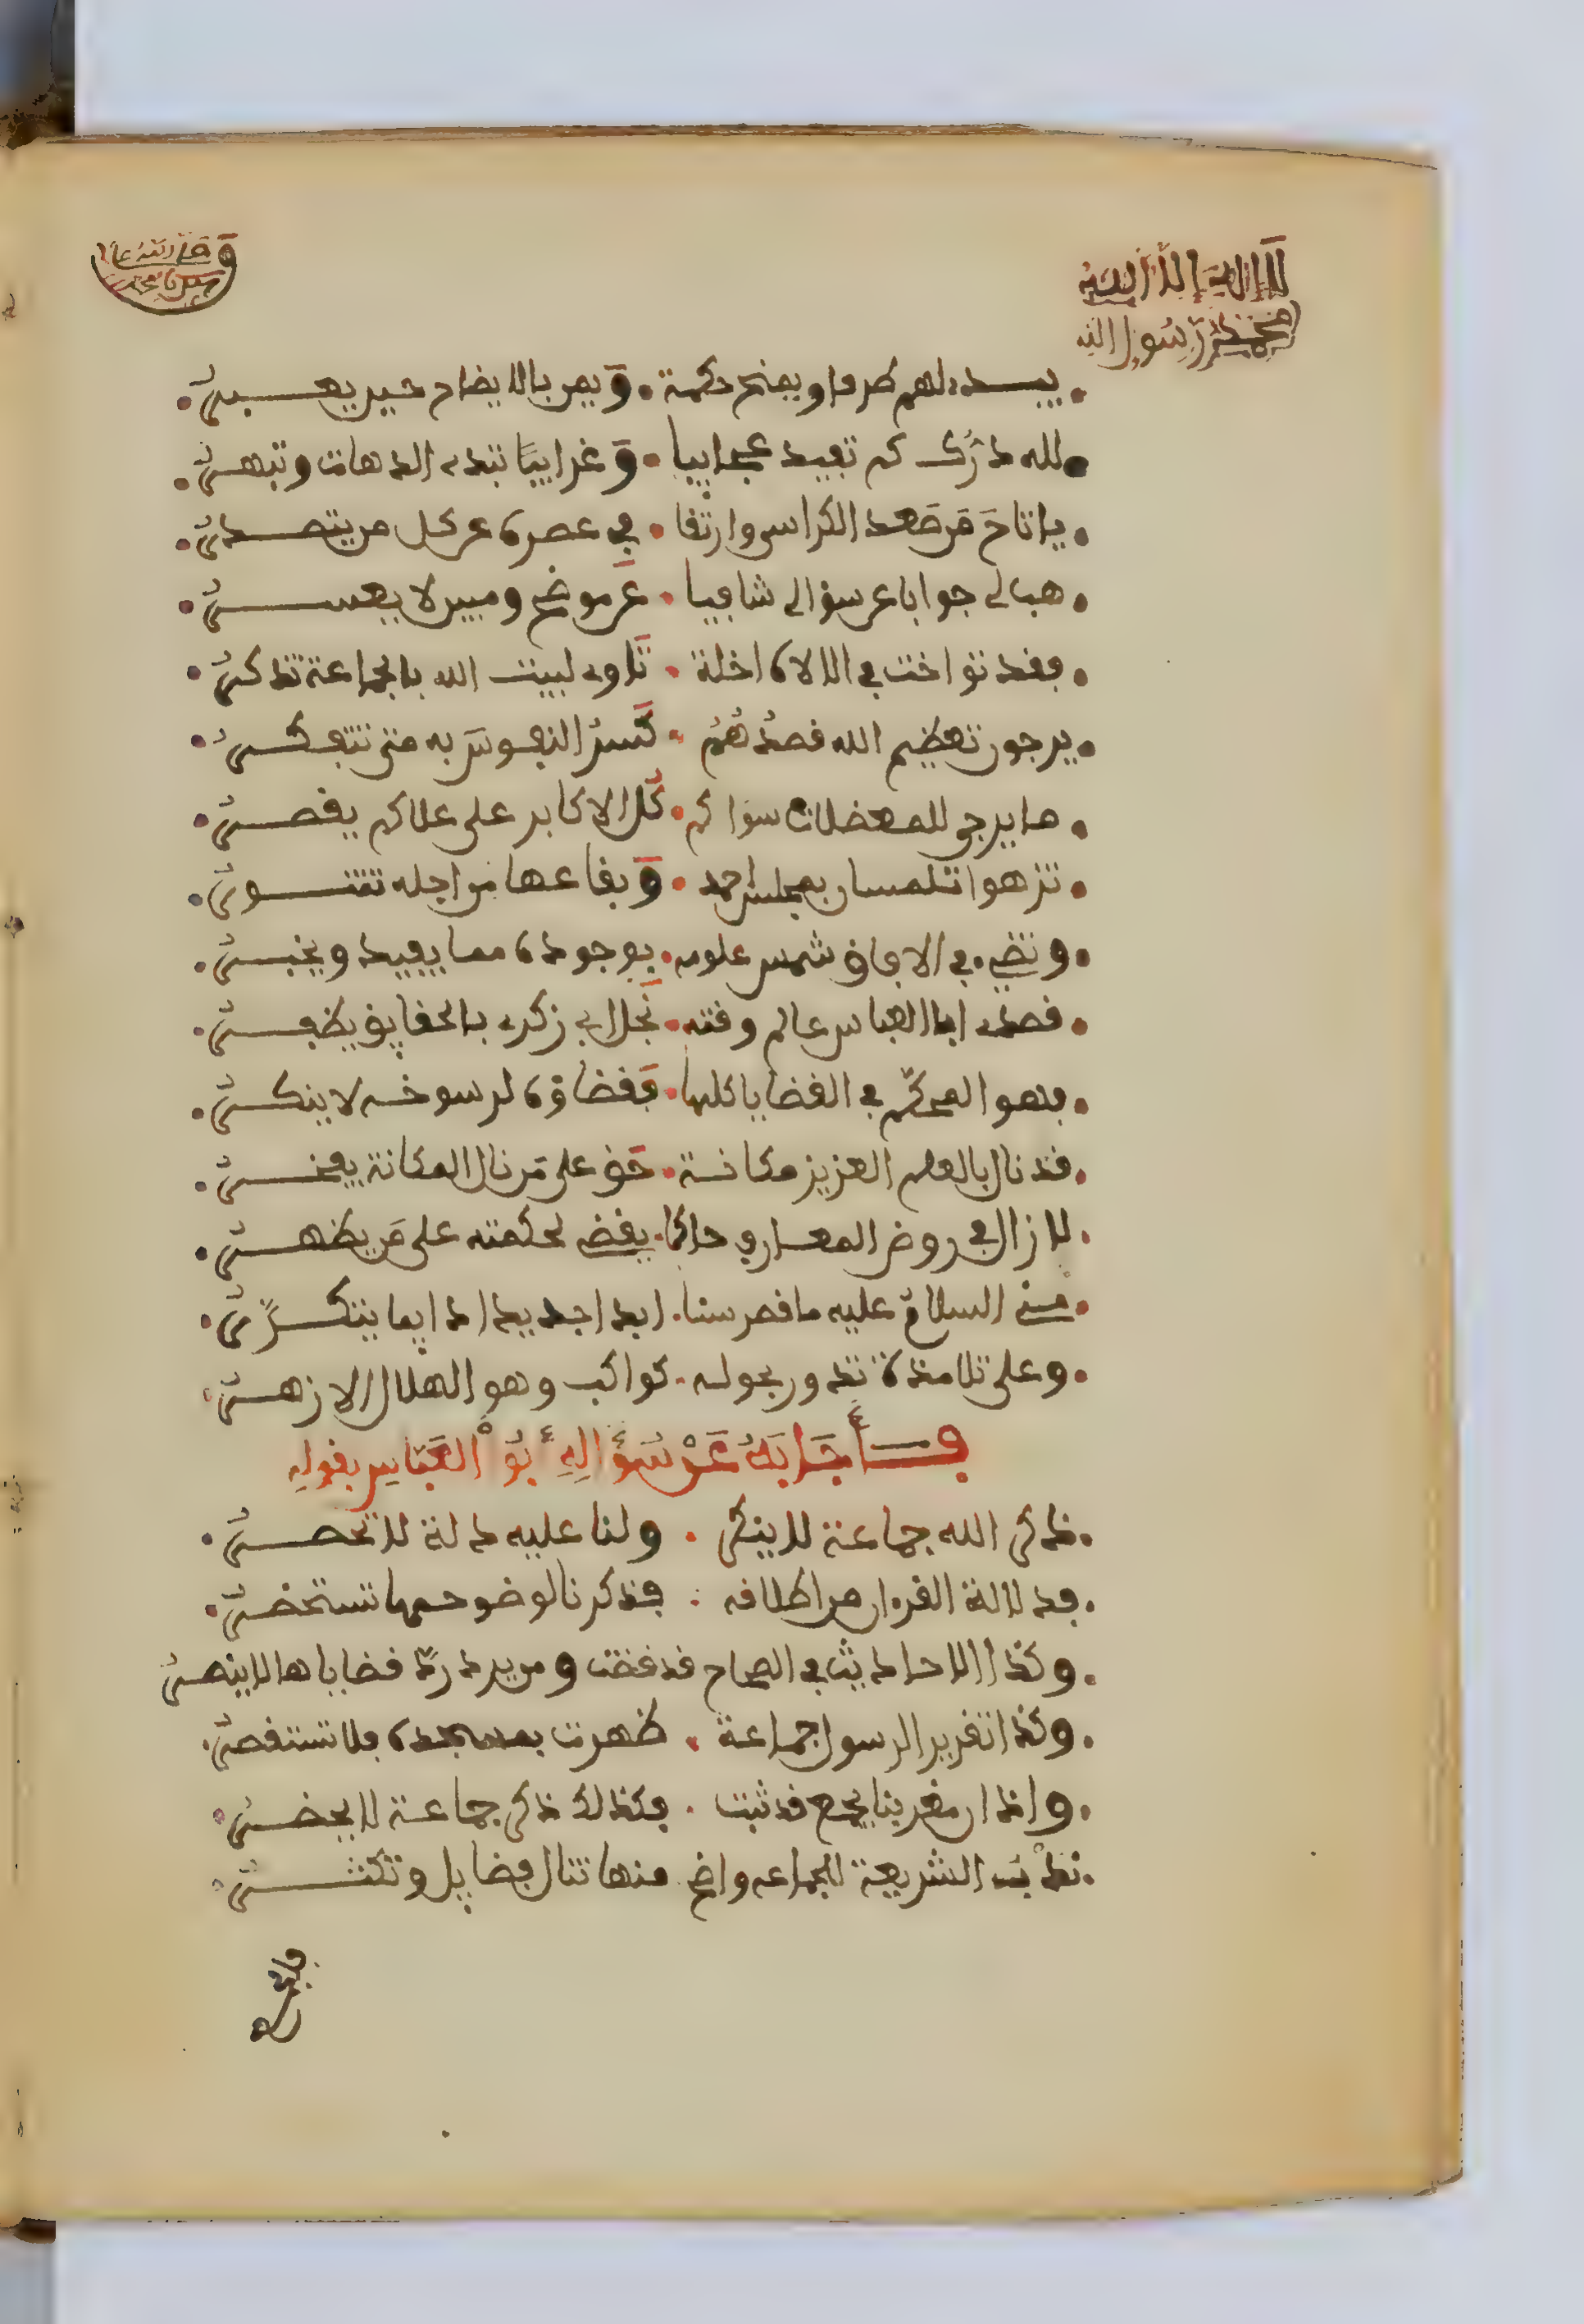 لا إله إلا الله
محمد رسول الله
وقف لله على
يبدي لهم طرفا ويمنح حكمة • ويمن بالايضاح حين يعبر
لله درك كم تفيد عجايبا • وغرايبا تبدي الدهات وتبهر
يا تاج من صعد الكراسي وارتقا • في عصره عن كل من يتصدر
هب لي جوابا عن سؤالي شافيا • عن موضح ومبين لا يعسر
فقد تواخت في الالاه اخلة • تاوي لبيت الله بالجماعة تذكر
يرجون تعظيم الله قصدهم • كسر النفوس به متى تتفكر
ما يرجى للمعضلات سواكم • كل الاكابر على علاكم يقصر
تزهوا تلمسان بمجلس احمد • وبقاعها من اجله تتنور
وتضيء في الافاق شمس علومه • بوجوده مما يفيد ويخبر
قصدي ابا العباس عالم وقته • نجل ابي زكري بالحقايق يظفر
فهو المحكم في القضايا كلها • فقضاؤه لرسوخه لا ينكر
قد نال بالعلم العزيز مكانة • حق على من نال المكانة يفخر
لا زال في روض المعارف حاكما • يقضي لحكمته على من يظهر
مني السلام عليه ما قمر سنا • ابدا جديدا دايما يتكرر
وعلى تلامذة تدور بحوله • كواكب وهو الهلال الازهر
فأجابه عن سؤاله أبو العباس بقوله
ذكر الله جماعة لا ينكر • ولنا عليه دلة لا تحصر
فدلالة القرءان من اطلاقه • فذكرنا لوضوحها تستحضر
وكذا الاحاديث في الصحاح قد غضت ومن يرد رد قضاياها لا ينصر
وكذا تقرير الرسول جماعة • ظهرت بمسجده فلا تستقصر
واذا من فريقنا بجمع قد ثبت • فكذلك ذكر جماعة لا يحضر
ندب الشريعة للجماعه واضح منها تنال فضايل وتكثر